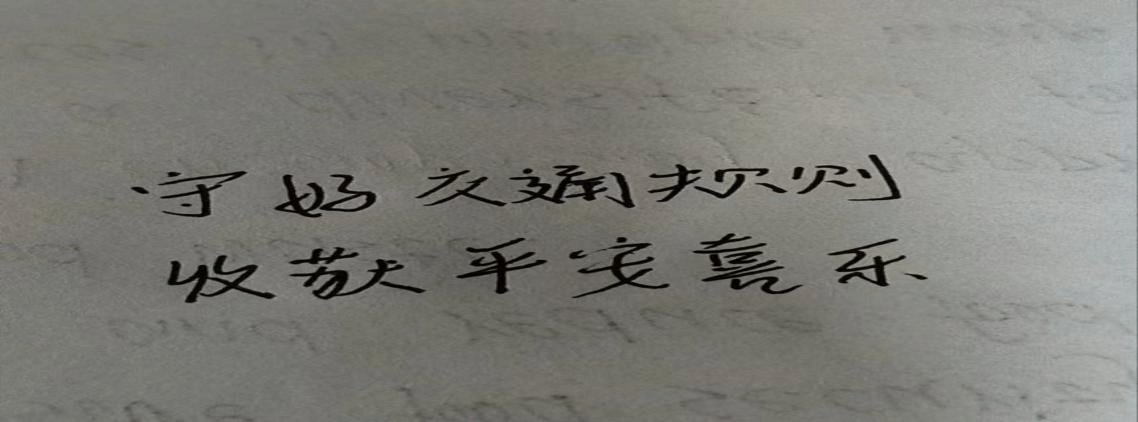 守好交通规则
收获平安喜乐